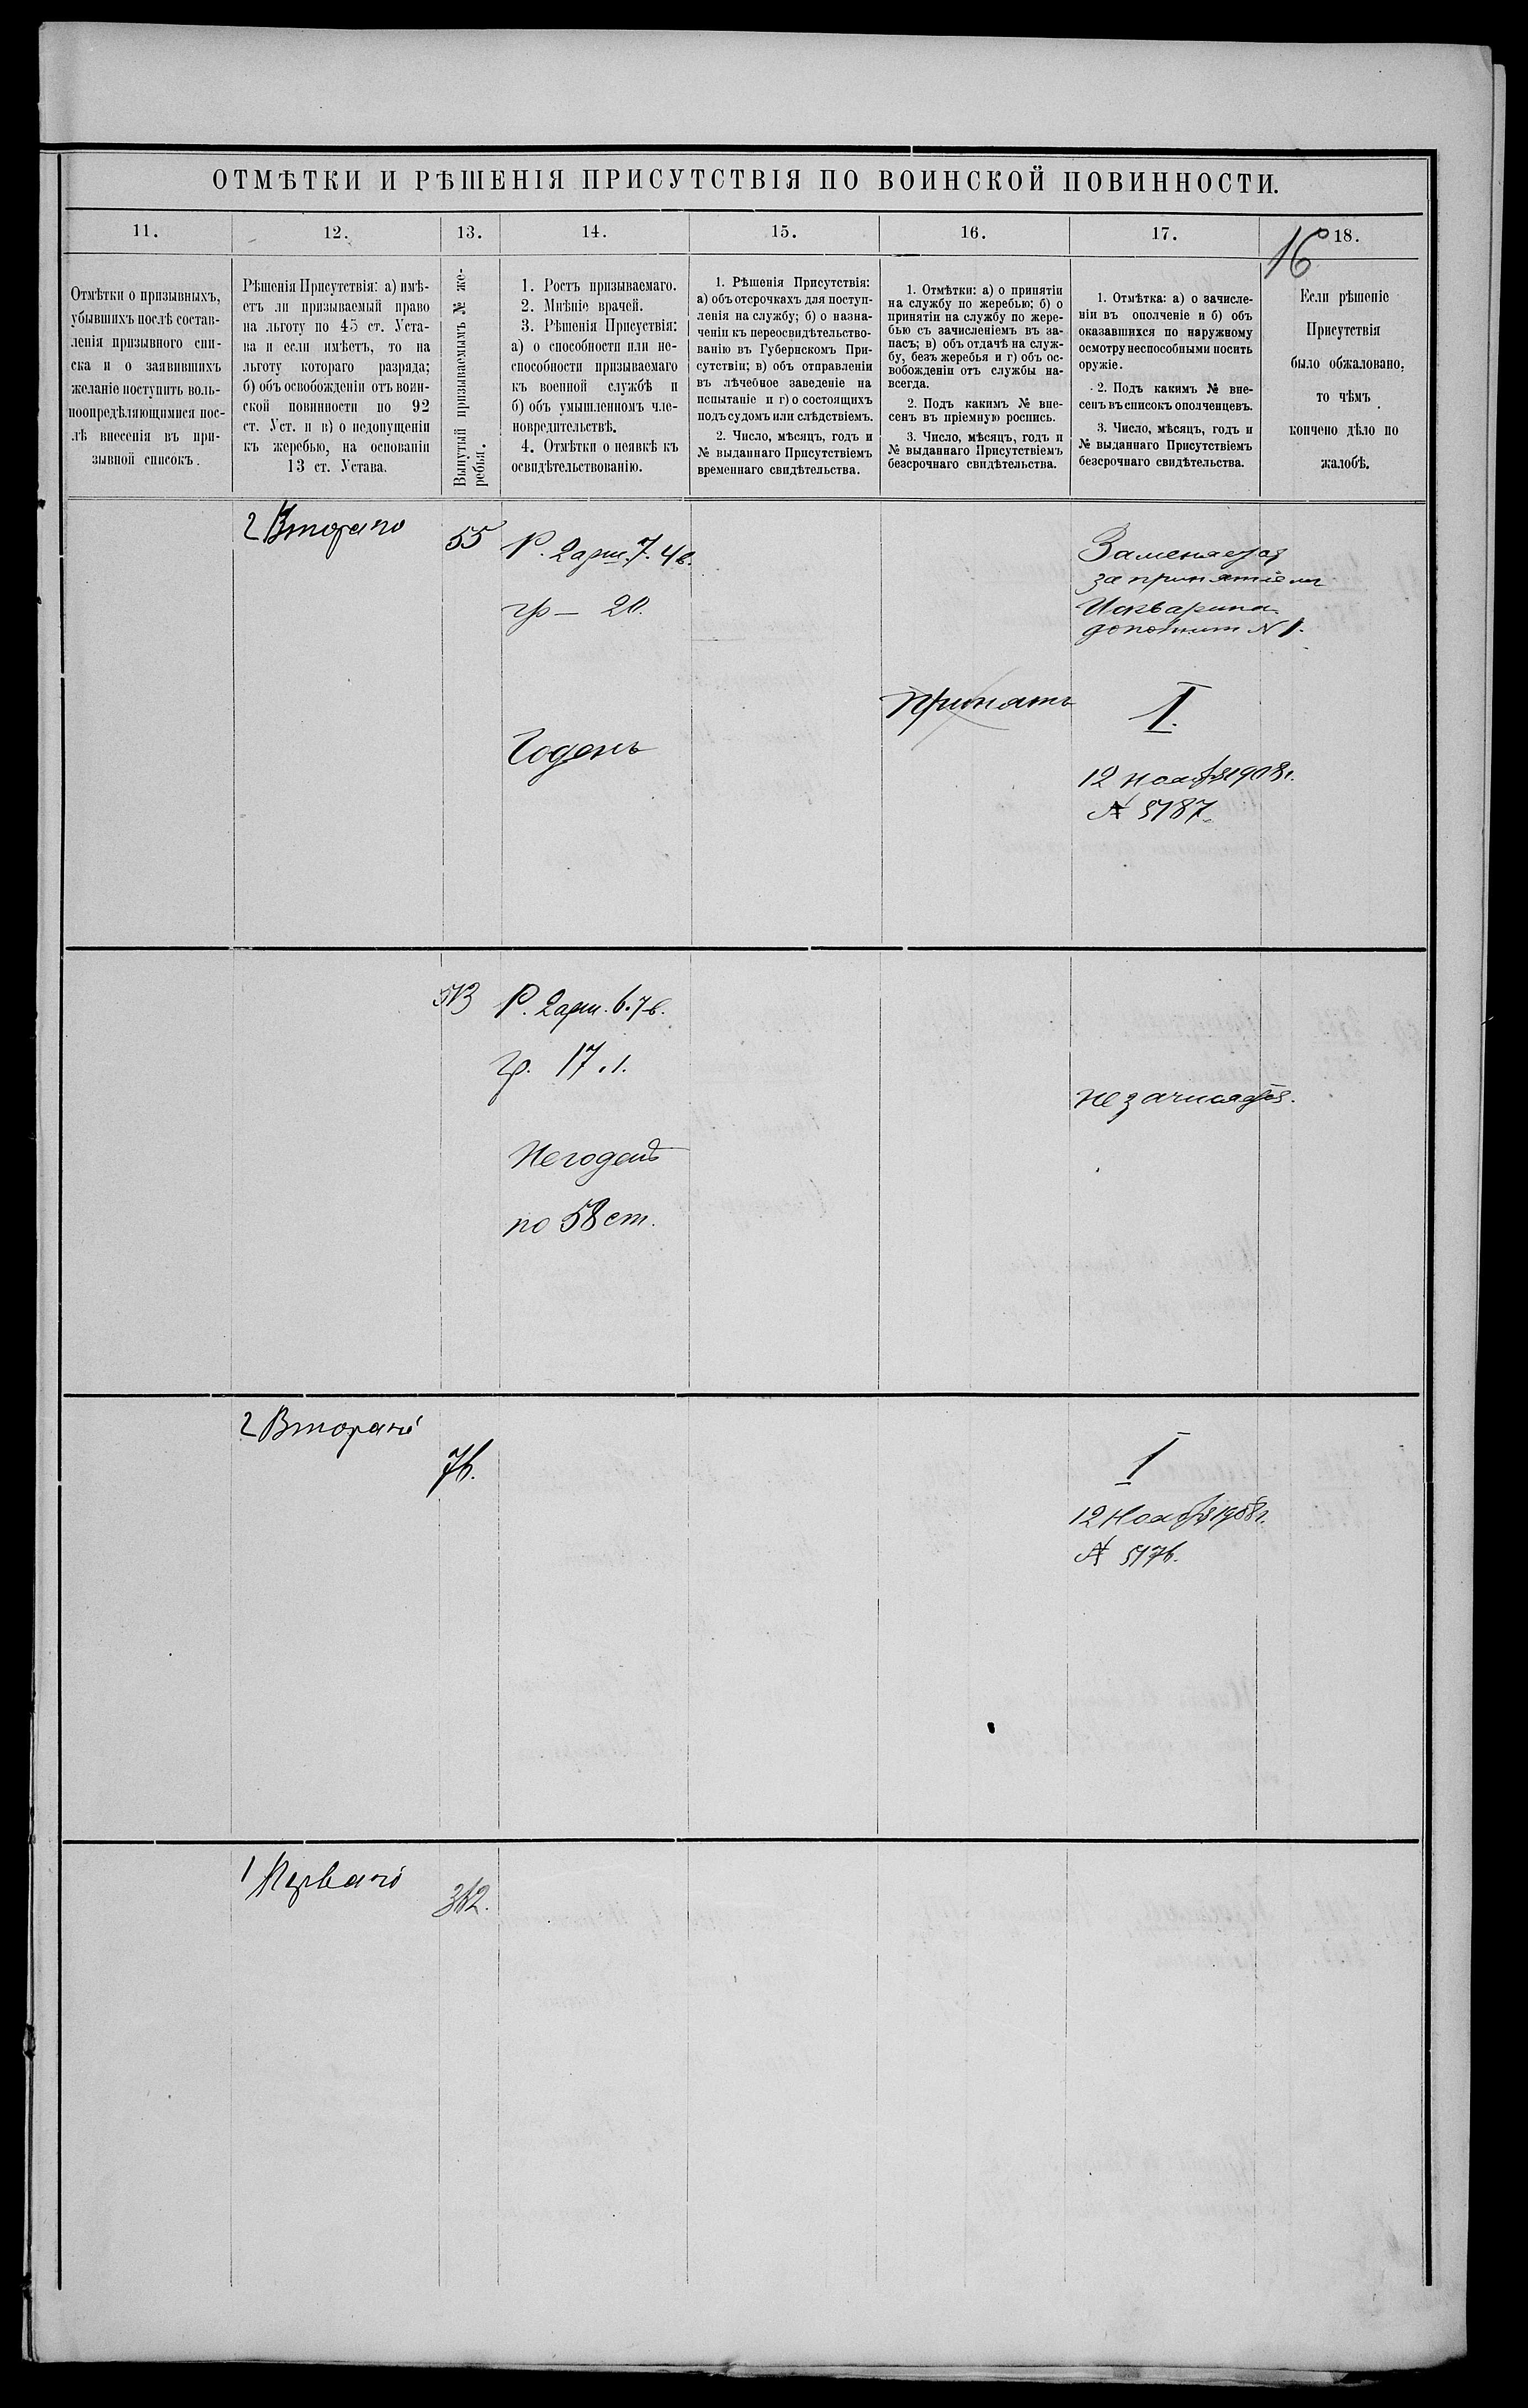 ОТМѢТКИ И РѢШЕНІЯ ПРИСУТСТВІЯ ПО ВОИНСКОЙ ПОВИННОСТИ.
11.
12.
13.
14.
15.
16.
17.
18.
16
Отмѣтки о призывныхъ,
убывшихъ послѣ состав-
ленія призывного спи-
ска и о заявившихъ
желаніе поступить воль-
ноопредѣляющимися пос-
лѣ внесенія въ при-
зывной списокъ.
Рѣшенія Присутствія: а) имѣ-
етъ ли призываемый право
на льготу по 45 ст. Уста-
ва и если имѣетъ, то на
льготу котораго разряда;
б) объ освобожденіи отъ воин-
ской повинности по 92
ст. Уст. и в) о недопущеніи
къ жеребью, на основаніи
13 ст. Устава.
Вынутый призываемымъ № же-
ребья.
1. Ростъ призываемаго.
2. Мнѣніе врачей.
3. Рѣшенія Присуствія:
а) о способности или не-
способности призываемаго
къ военной службѣ и
б) объ умышленномъ чле-
новредительствѣ.
4. Отмѣтки о неявкѣ къ
освидѣтельствованію.
1. Рѣшенія Присутствія:
а) объ отсрочкахъ для поступ-
ленія на службу; б) о назна-
ченіи къ переосвидѣтельство-
ванію въ Губернскомъ При-
сутствіи; в) объ отправленіи
въ лѣчебное заведеніе на
испытаніе и г) о состоящихъ
подъ судомъ или слѣдствіемъ.
2. Число, мѣсяцъ, годъ и
№ выданнаго Присутствіемъ
временнаго свидѣтельства.
1. Отмѣтки: а) о принятіи
на службу по жеребью; б) о
принятіи на службу по жере-
бью съ зачисленіемъ въ за-
пасъ; в) объ отдачѣ на служ-
бу, безъ жеребья и г) объ ос-
вобожденіи отъ службы на-
всегда.
2. Подъ какимъ № вне-
сенъ въ пріемную роспись.
3. Число, мѣсяцъ, годъ и
№ выданнаго Присутствіемъ
безсрочнаго свидѣтельства.
1. Отмѣтка: а) о зачисле-
ніи въ ополченіе и б) объ
оказавшихся по наружному
осмотру неспособными носить
оружіе.
2. Подъ какимъ № вне-
сенъ въ списокъ ополченцевъ.
3. Число, мѣсяцъ, годъ и
№ выданнаго Присутствіемъ
безсрочнаго свидѣтельства.
Если рѣшеніе
Присутствія
было обжаловано,
то чѣмъ
кончено дѣло по
жалобѣ.
2 Втораго
55
Р. 2 арш. 7. 4 в.
гр — 20.
Годенъ
принятъ
за принятіем
№ 1.
I.
12 нояб 1908 г.
№ 5187.
513
Р. 2 арш. 6. 7 в.
гр. 17. 1.
Негоденъ
по 58 ст.
не зачисляется.
2 Втораго
76.
I
12 Нояб 1908 г.
№ 5176.
1 Перваго